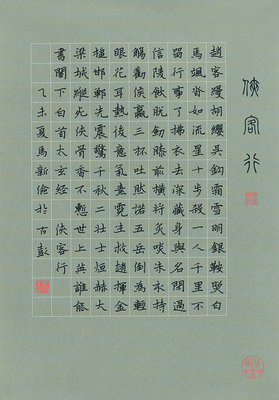 俠客行
趙客縵胡纓吳鉤霜雪明銀鞍照白
馬颯沓如流星十步殺一人千里不
留行事了拂衣去深藏身與名閒過
信陵飲脫劍膝前橫將炙啖朱亥持
觴勸侯嬴三杯吐然諾五岳倒為輕
眼花耳熱後意氣素霓生救趙揮金
槌邯鄲先震驚千秋二壯士烜赫大
梁城縱死俠骨香不慙世上英誰能
書閣下白首太玄經 俠客行
乙未夏馬新倫於古彭